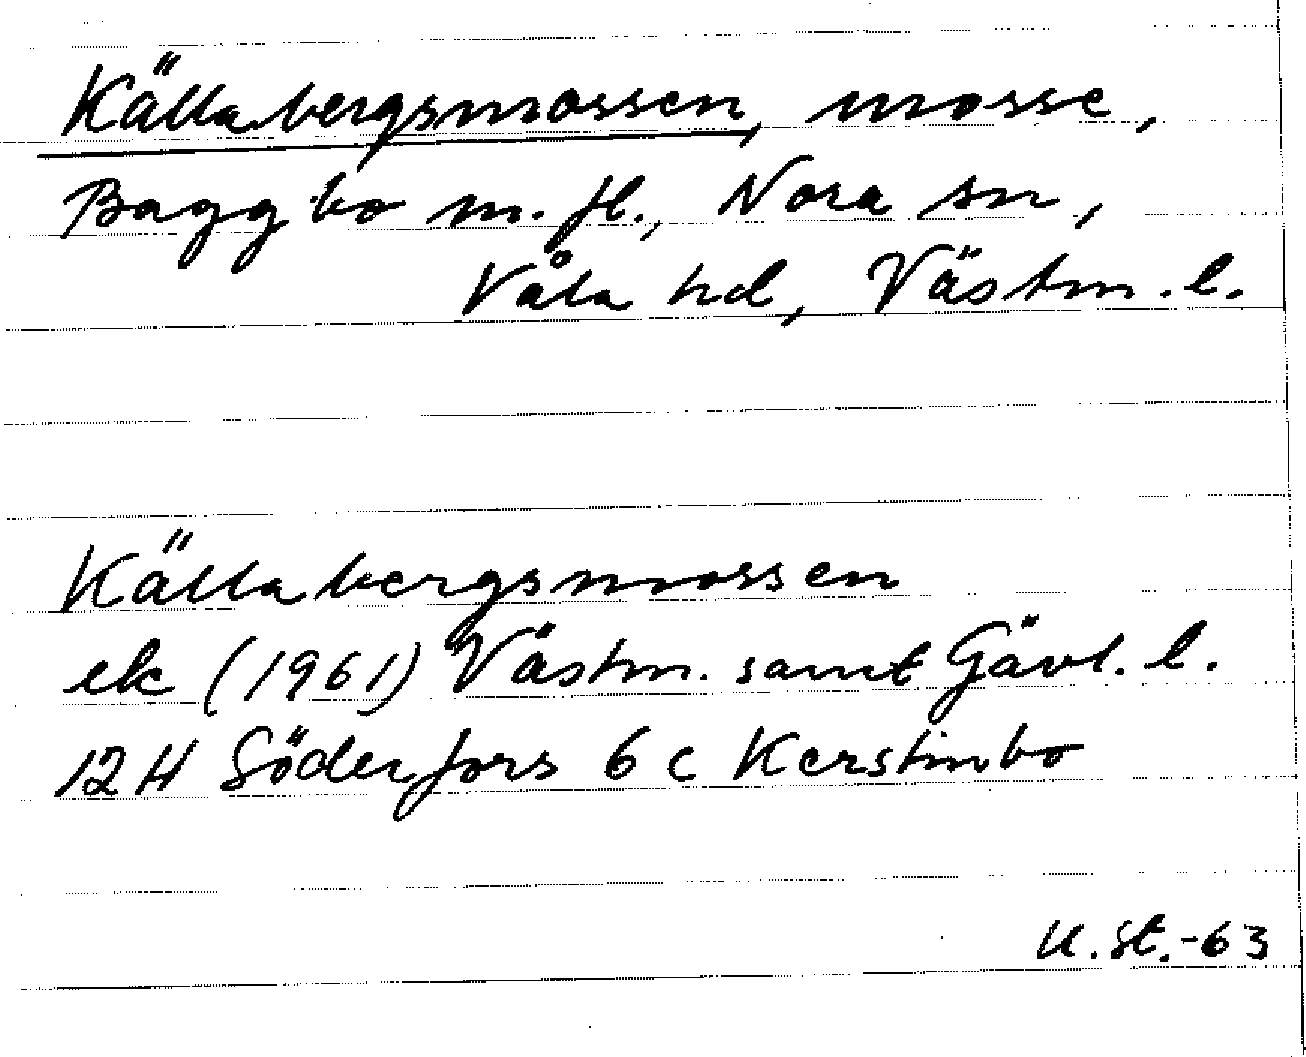 Källabergsmossen, mosse,
Baggbo m. fl., Nora sn,
Våla hd, Västm. l.
Källabergsmossen
ek (1961) Västm. samt Gävl. l.
12 H Söderfors 6 c Kerstinbo
U. St. -63